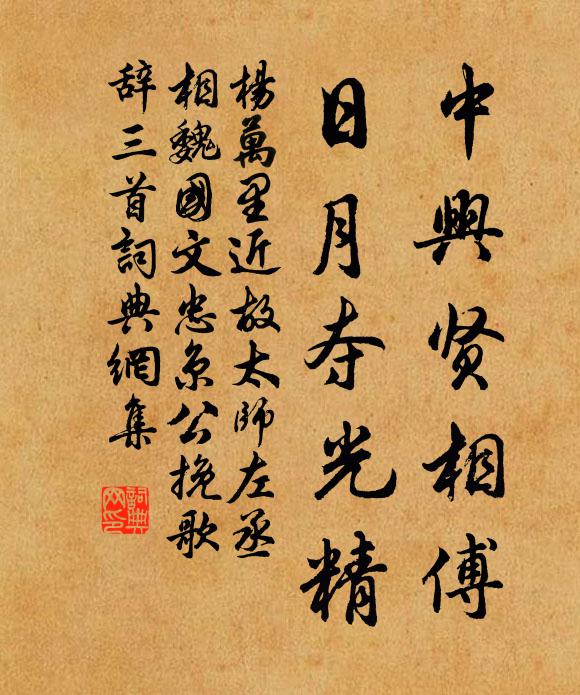 中興贤相傅
日月夺光精
楊萬里近故太師左丞
相魏國文忠京公挽歌
辞三首詞典網集
詞典網印